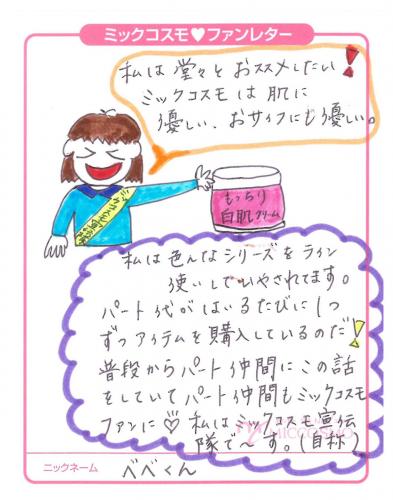 ミックコスモ♥ファンレター
私は堂々とおススメしたい!
ミックコスモは肌に
優しい、おサイフにも優しい。
もっちり
白肌クリーム
私は色んなシリーズをライン
使いしていやされてます。
パート代がはいるたびに1つ
ずつアイテムを購入しているのだ!
普段からパート仲間にこの話
をしていてパート仲間もミックコスモ
ファンに♡私はミックコスモ宣伝
隊で〜す。(自称)
ニックネーム
べべくん